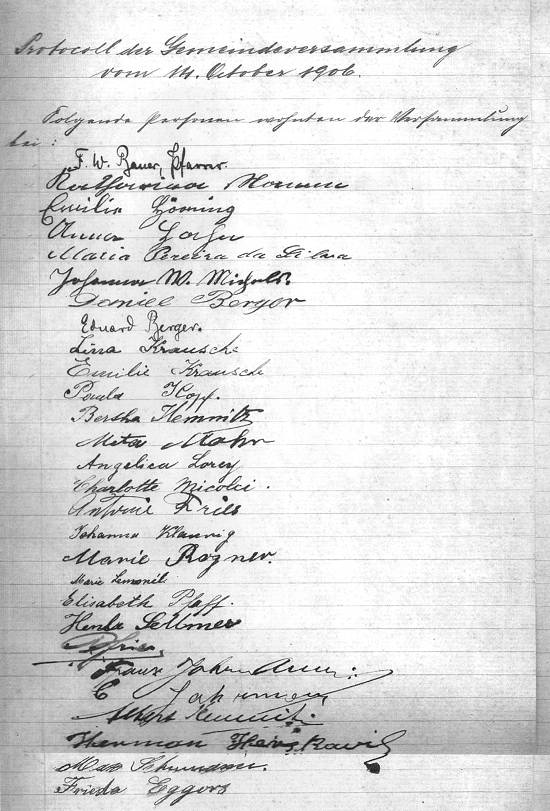 Protocoll der Gemeindeversammlung
vom 14. October 1906.
Folgende Personen wohnten der Versammlung
bei:
F. W. Bauer, Pfarrer.
Katharina
Emilie Höming
Anna
Maria Pereira da Silva
Johanna W. Michels.
Daniel Berger
Eduard Berger.
Lina Krausche
Emilie Krausche
Paula Kopp.
Bertha Kemnitz
Meta Mohr
Angelica Lorey
Charlotte Nicolci.
Antonie Fries
Johanna
Marie Rogner.
Marie
Elisabeth Pfaff.
Sellmer
Fries,
Franz
E
Albert
Herman
Max
Frieda Eggers